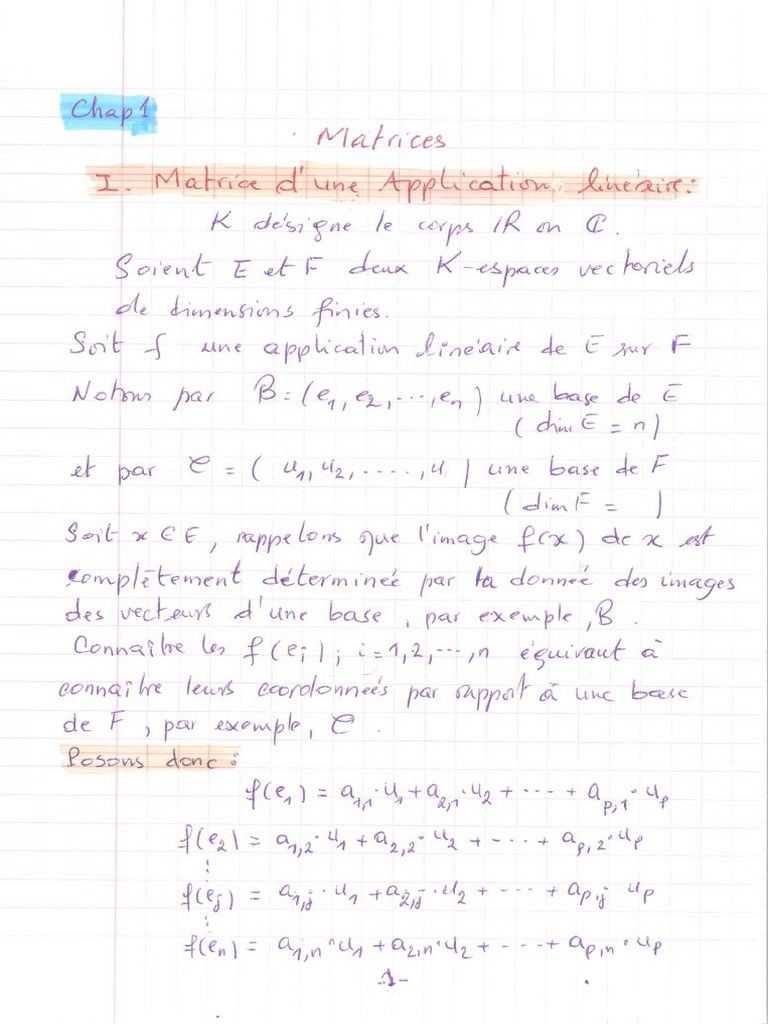 Chap 1
Matrices
I. Matrice d'une Application linéaire:
K désigne le corps IR ou ℂ.
Soient E et F deux K-espaces vectoriels
de dimensions finies.
Soit f une application linéaire de E sur F
Notons par B = (e1, e2, ..., en) une base de E
(dim E = n)
et par C = ( u1, u2, ....., u ) une base de F
(dim F = )
Soit x ∈ E, rappelons que l'image f(x) de x est
complètement déterminée par la donnée des images
des vecteurs d'une base, par exemple, B.
Connaître les f(ei); i=1,2,...,n équivaut à
connaître leurs coordonnées par rapport à une base
de F, par exemple, C.
Posons donc:
f(e1) = a1,1·u1 + a2,1·u2 + ... + ap,1·up
f(e2) = a1,2·u1 + a2,2·u2 + ... + ap,2·up
⋮
f(ej) = a1,j·u1 + a2,j·u2 + ... + ap,j·up
⋮
f(en) = a1,n·u1 + a2,n·u2 + ... + ap,n·up
-1-